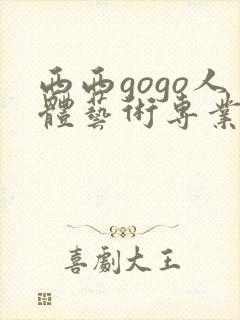 西西gogo人
體藝術專業
喜劇大王